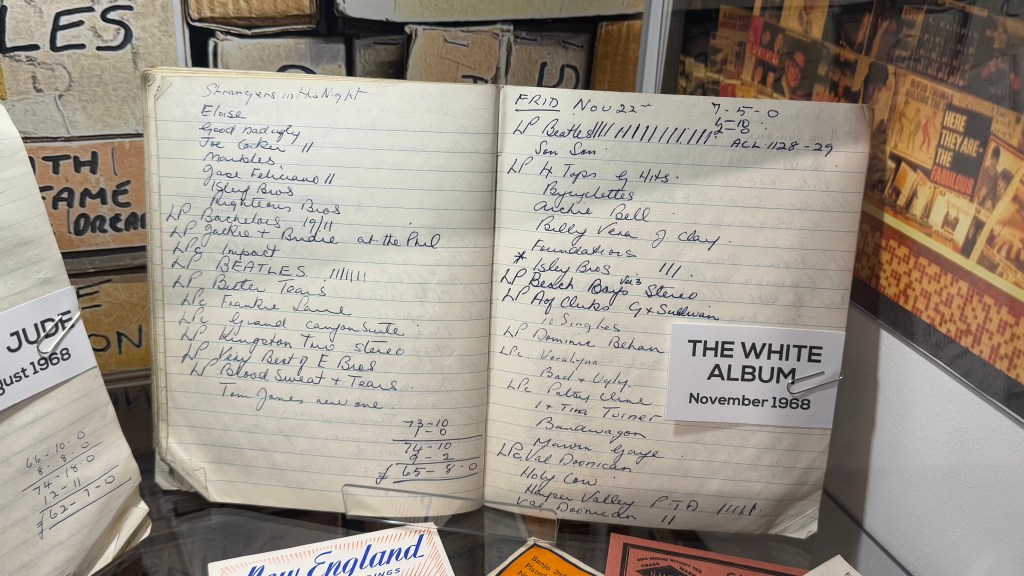 LES
TH
FAME
DREA
ON
JUDE
gust 1968
66-10-0
8-8-0
74-18-0
12-11
£62-7-0
Strangers in the Night
Eloise
Good bad ugly
Joe Cocker 11
Marbles
Jose Feliciano 11
Isley Bros
Righteous Bros
LP Bachelors 19/11
LP Jackie + Bridie at the Phil
LPc Impact
LP BEATLES 1111111
LP Better Tears
LPc Frankie Laine
LPc Grand canyon suite
LP Kingston Trio stereo
LP Very Best of E Bros
LP Blood Sweat + Tears
Tom Jones new one
73-10
74-10
9-2
£65-8-0
FRID Nov 22nd 7-5-0
LP Beatles ACL 1128-29
Son Son
LP 4 Tops G Hits.
Bycyclettes
Archie Bell
Billy Vera J Clay.
Foundations
* Isley Bros 111.
LP Beach Boys Vol 3 Stereo
LP G + Sullivan
10 Singles
LP Dominic Behan
LPc
Bad + Ugly
LPc Patsy Cline
I + Tina Turner
Bandwagon
Marvin Gaye
LPc Val Doonican
Holy Cow
Harper Valley P.T.A
Val Doonican 11
THE WHITE
ALBUM
November 1968
HERE
THEY ARE:
THE
FABULOUS
New England
Banjo 2nd
Plated